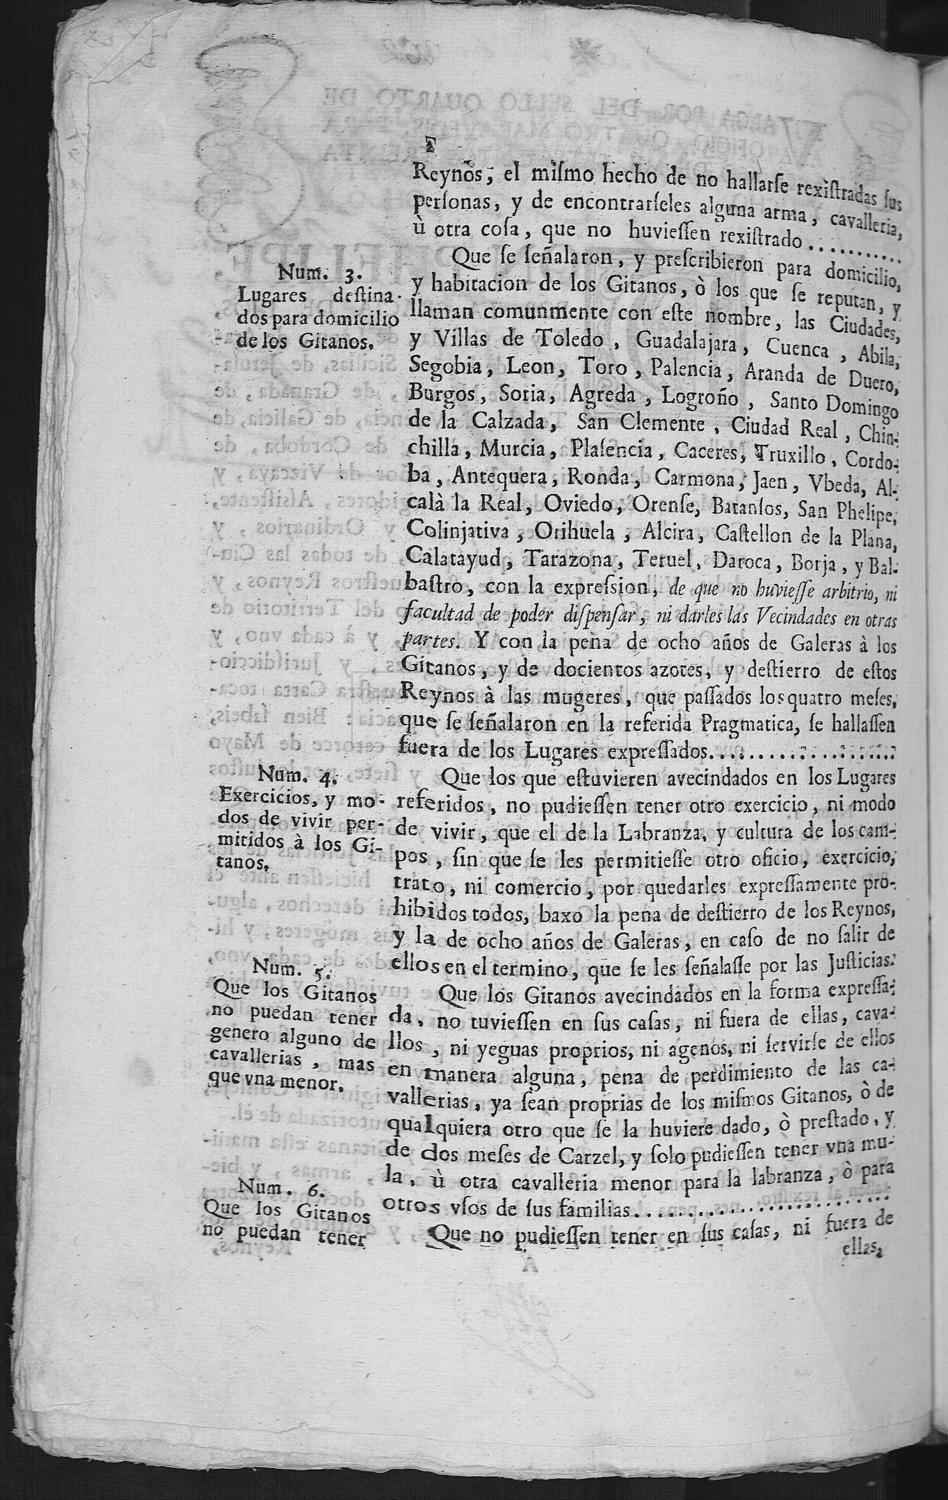 Reynos; el miſmo hecho de no hallarſe rexiſtradas ſus
perſonas, y de encontrarſeles alguna arma, cavalleria,
ù otra coſa, que no huvieſſen rexiſtrado..........
Num. 3.
Lugares deſtina-
dos para domicilio
de los Gitanos.
Que ſe ſeñalaron, y preſcribieron para domicilio,
y habitacion de los Gitanos, ò los que ſe reputan, y
llaman comunmente con eſte nombre, las Ciudades,
y Villas de Toledo, Guadalajara, Cuenca, Abila,
Segobia, Leon, Toro, Palencia, Aranda de Duero,
Burgos, Soria, Agreda, Logroño, Santo Domingo
de la Calzada, San Clemente, Ciudad Real, Chin-
chilla, Murcia, Plaſencia, Caceres, Truxillo, Cordo-
ba, Antequera, Ronda, Carmona, Jaen, Vbeda, Al-
calà la Real, Oviedo, Orenſe, Batanſos, San Phelipe,
Colinjativa, Orihuela, Alcira, Caſtellon de la Plana,
Calatayud, Tarazona, Teruel, Daroca, Borja, y Bal-
baſtro, con la expreſsion, de que no huvieſſe arbitrio, ni
facultad de poder diſpenſar, ni darles las Vecindades en otras
partes. Y con la pena de ocho años de Galeras à los
Gitanos, y de docientos azotes, y deſtierro de eſtos
Reynos à las mugeres, que paſſados los quatro meſes,
que ſe ſeñalaron en la referida Pragmatica, ſe hallaſſen
fuera de los Lugares expreſſados..................
Num. 4.
Exercicios, y mo-
dos de vivir per-
mitidos à los Gi-
tanos.
Que los que eſtuvieren avecindados en los Lugares
referidos, no pudieſſen tener otro exercicio, ni modo
de vivir, que el de la Labranza, y cultura de los cam-
pos, ſin que ſe les permitieſſe otro oficio, exercicio,
trato, ni comercio, por quedarles expreſſamente pro-
hibidos todos, baxo la pena de deſtierro de los Reynos,
y la de ocho años de Galeras, en caſo de no ſalir de
ellos en el termino, que ſe les ſeñalaſſe por las Juſticias.
Num. 5.
Que los Gitanos
no puedan tener
genero alguno de
cavallerias, mas
que vna menor.
Que los Gitanos avecindados en la forma expreſſa-
da, no tuvieſſen en ſus caſas, ni fuera de ellas, cava-
llos, ni yeguas proprios, ni agenos, ni ſervirſe de ellos
en manera alguna, pena de perdimiento de las ca-
vallerias, ya ſean proprias de los miſmos Gitanos, ò de
qualquiera otro que ſe la huviere dado, ò preſtado, y
de dos meſes de Carzel, y ſolo pudieſſen tener vna mu-
la, ù otra cavalleria menor para la labranza, ò para
otros vſos de ſus familias......................
Num. 6.
Que los Gitanos
no puedan tener
Que no pudieſſen tener en ſus caſas, ni fuera de
ellas,
A